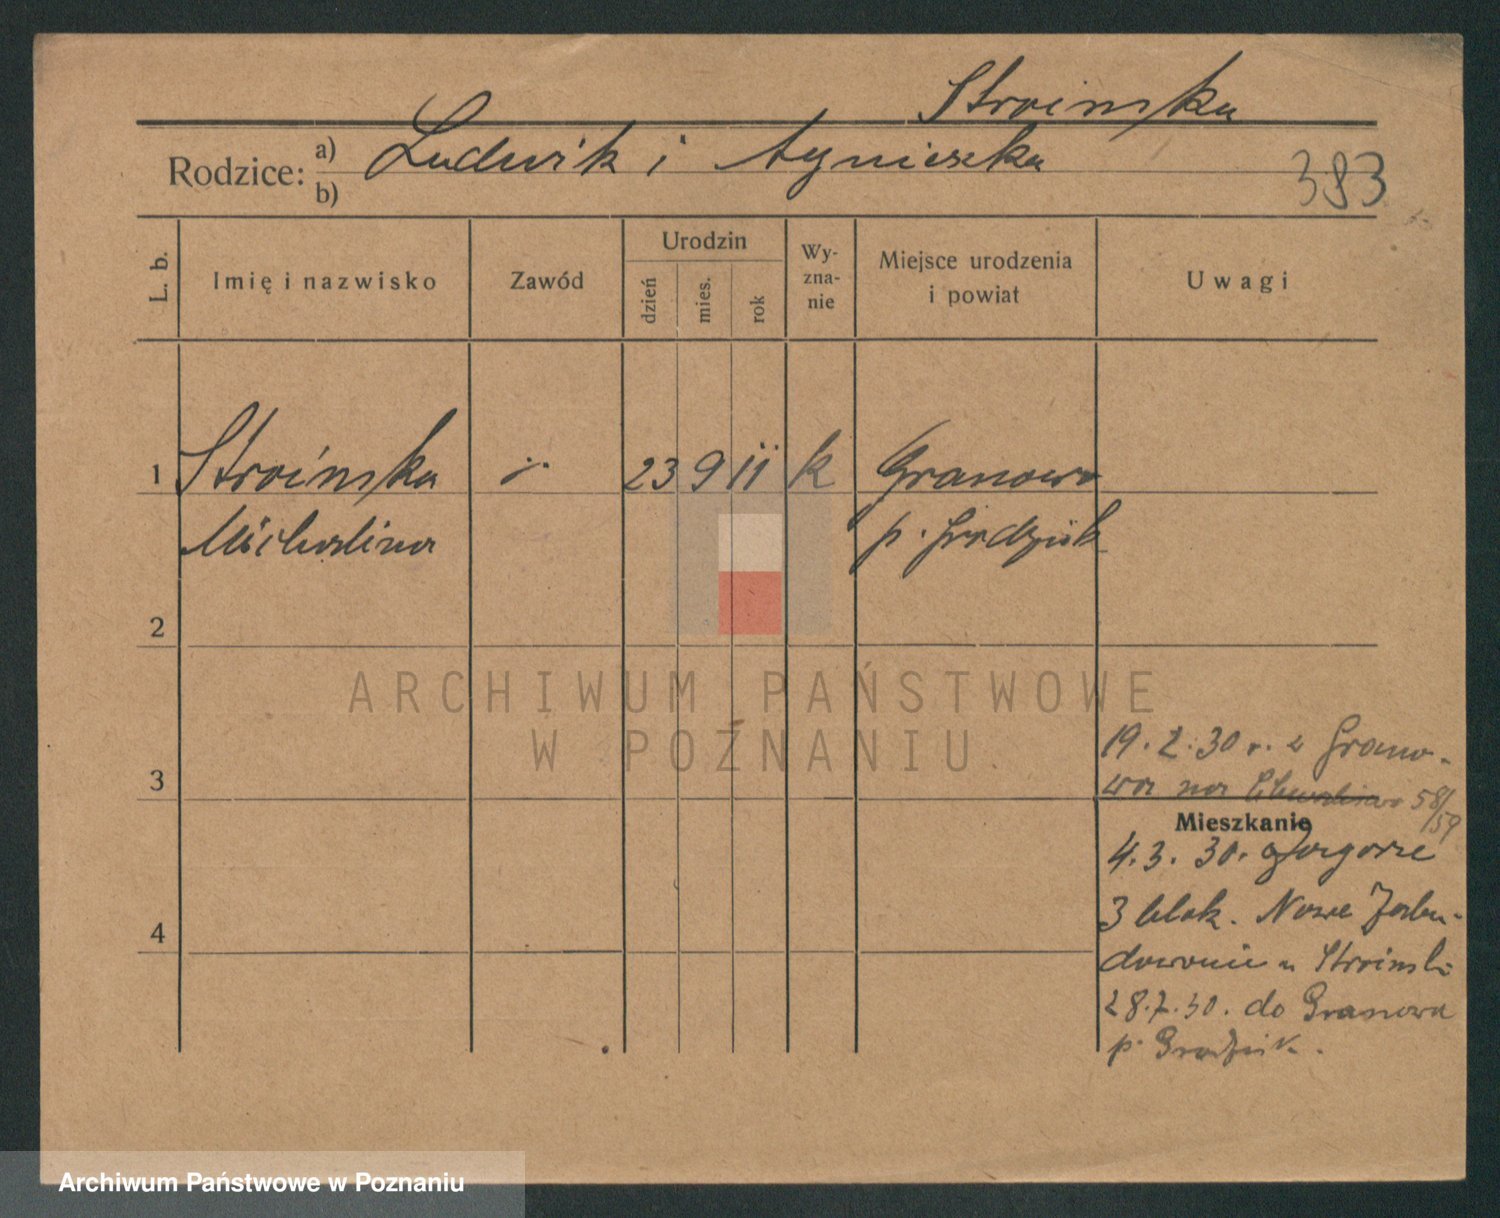 Stroinska
Rodzice: a) Ludwik i Agnieszka
b)
383
L. b.
Imię i nazwisko
Zawód
Urodzin
dzień
mies.
rok
Wy-
zna-
nie
Miejsce urodzenia
i powiat
Uwagi
1 Stroinska 23 9 11 k Granowo
Michalina p. Grodzisk
2
ARCHIWUM PAŃSTWOWE
W POZNANIU
3
19.2.30 r. z Grano-
wa na 58/59
Mieszkanie
4.3.30. Zagorze
3 blok. Nowe Zabu-
dowanie u Stroinski
4
28.7.30. do Granowa
p. Grodzisk.
Archiwum Państwowe w Poznaniu